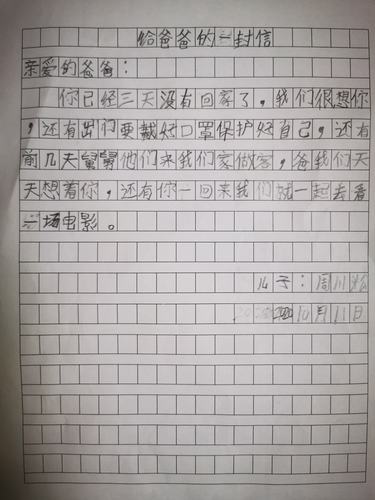 给爸爸的一封信
亲爱的爸爸：
你已经三天没有回家了，我们很想你
，还有出门要戴好口罩保护好自己，还有
前几天舅舅他们来我们家做客，爸我们天
天想着你，还有你一回来我们就一起去看
一场电影。
儿子：周川
10月11日